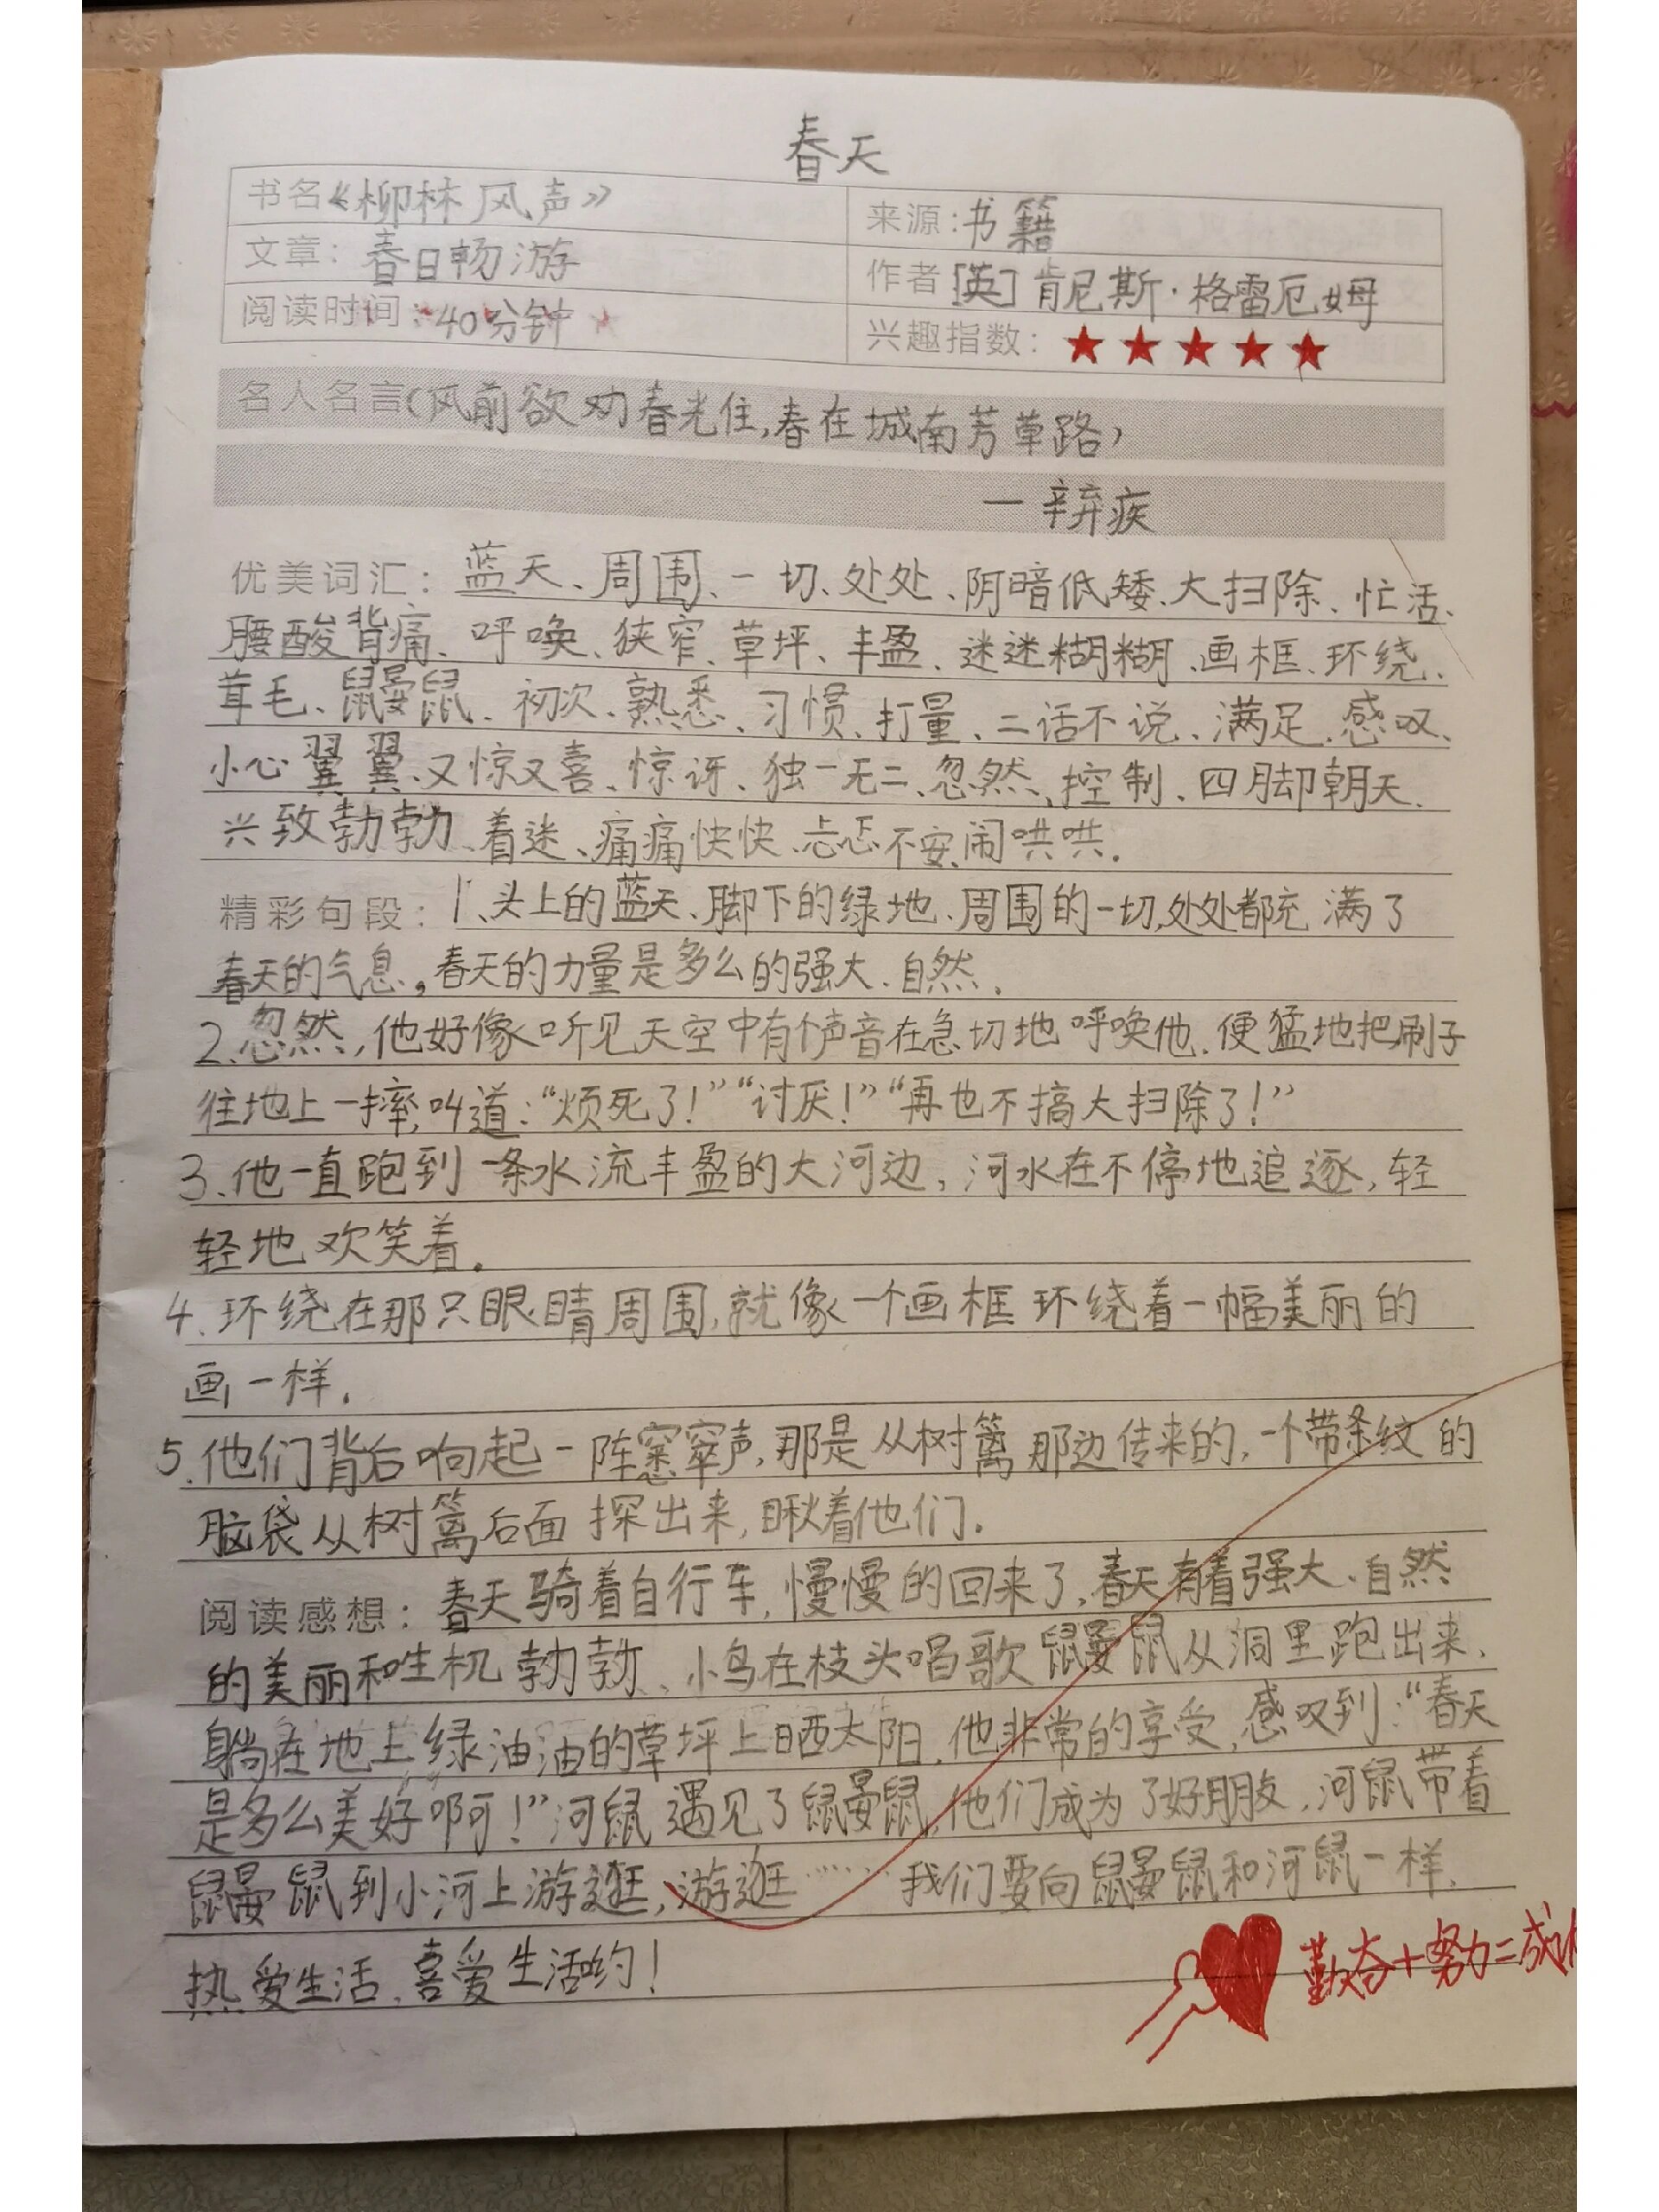 春天
书名《柳林风声》
来源:书籍
文章:春日畅游
作者[英]肯尼斯·格雷厄姆
阅读时间:40分钟
兴趣指数:★★★★★
名人名言(风前欲劝春光住,春在城南芳草路)
一辛弃疾
优美词汇:蓝天、周围、一切、处处、阴暗低矮、大扫除、忙活、
腰酸背痛、呼唤、狭窄、草坪、丰盈、迷迷糊糊、画框、环绕、
茸毛、鼹鼠、初次、熟悉、习惯、打量、二话不说、满足、感叹、
小心翼翼、又惊又喜、惊讶、独一无二、忽然、控制、四脚朝天、
兴致勃勃、着迷、痛痛快快、忐忑不安、闹哄哄.
精彩句段:1、头上的蓝天、脚下的绿地、周围的一切,处处都充满了
春天的气息,春天的力量是多么的强大、自然.
2、忽然,他好像听见天空中有个声音在急切地呼唤他.便猛地把刷子
往地上一摔,叫道:“烦死了!”“讨厌!”“再也不搞大扫除了!”
3、他一直跑到一条水流丰盈的大河边,河水在不停地追逐,轻
轻地欢笑着.
4、环绕在那只眼睛周围,就像一个画框环绕着一幅美丽的
画一样.
5.他们背后响起一阵窸窣声,那是从树篱那边传来的,一个带条纹的
脑袋从树篱后面探出来,瞅着他们.
阅读感想:春天骑着自行车,慢慢的回来了,春天有着强大、自然
的美丽和生机勃勃、小鸟在枝头唱歌鼹鼠从洞里跑出来、
躺在地上绿油油的草坪上晒太阳,他非常的享受,感叹到:“春天
是多么美好啊!”河鼠遇见了鼹鼠,他们成为了好朋友,河鼠带着
鼹鼠到小河上游逛,游逛……我们要向鼹鼠和河鼠一样,
热爱生活、喜爱生活哟!
勤奋+努力=成